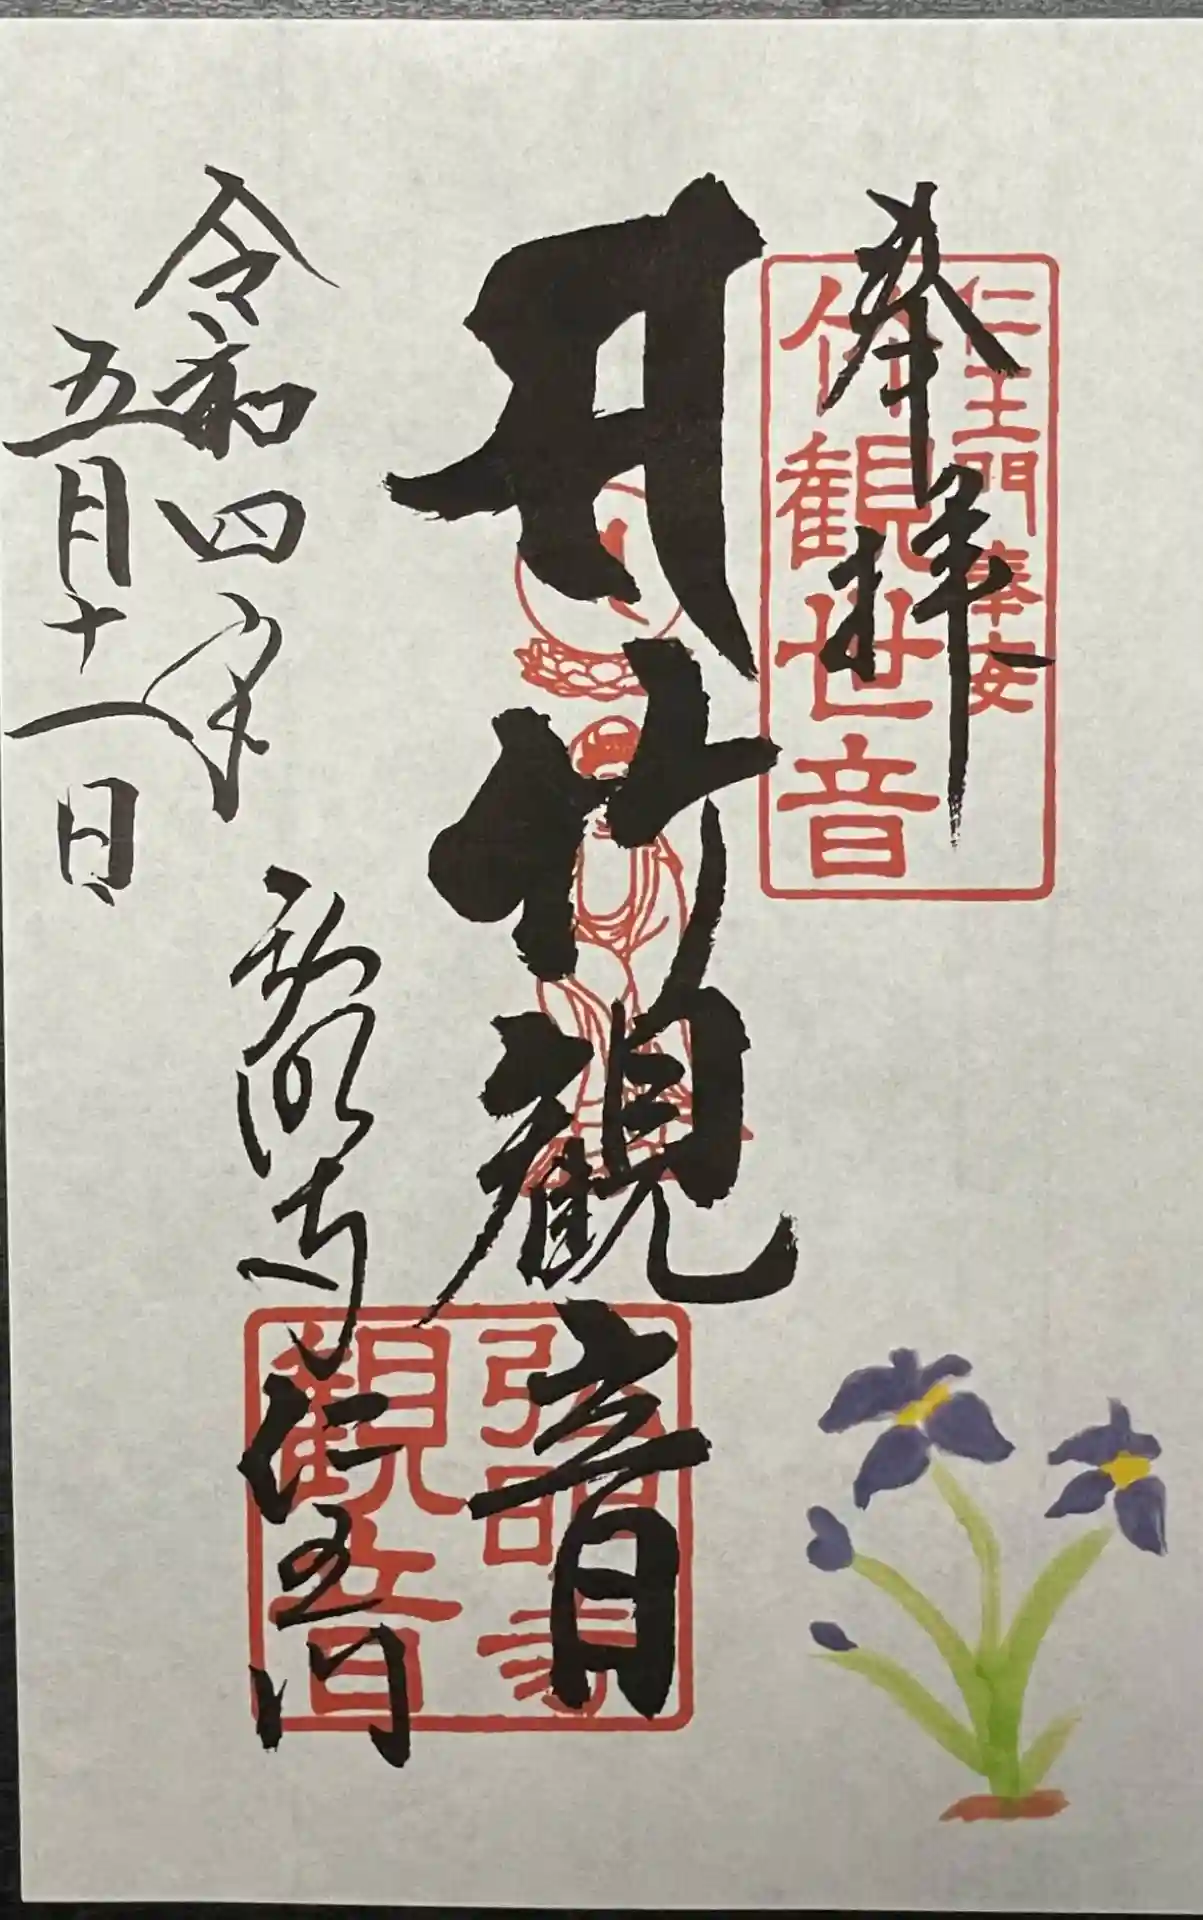 奉拝
仁王門奉安
竹観世音
竹観音
弘明寺
観音
弘明寺仁王門
令和四年
五月十一日